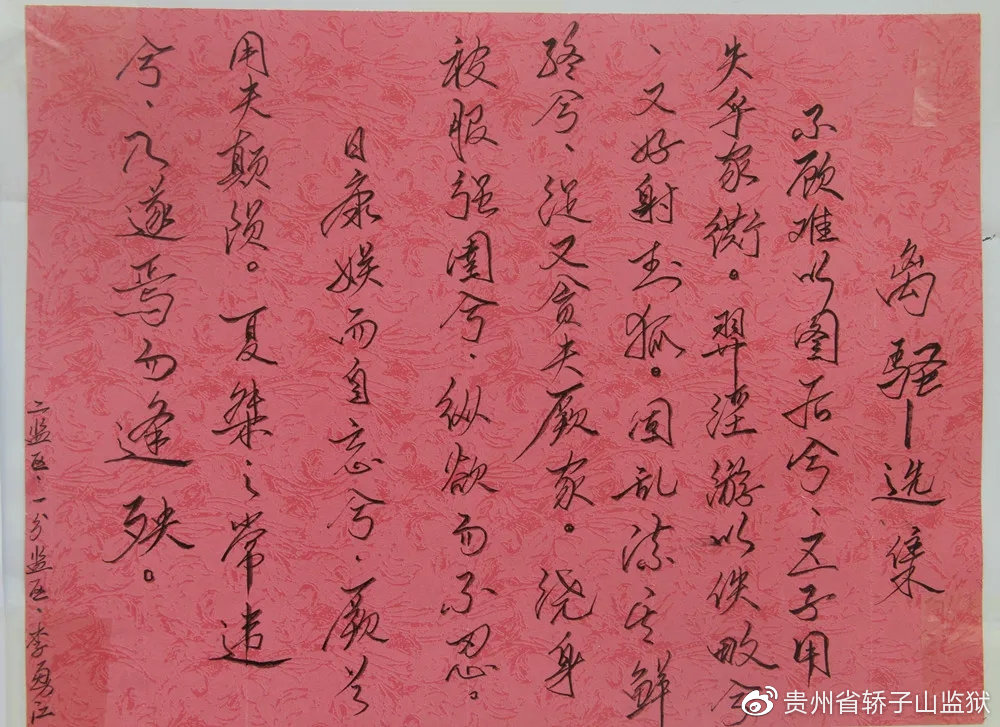 离骚—选集
不顾难以图后兮、五子用
失乎家衖。羿淫游以佚畋兮
、又好射封狐。固乱流其鲜
终兮、浞又贪夫厥家。浇身
被服强圉兮、纵欲而不忍。
日康娱而自忘兮、厥首
用夫颠陨。夏桀之常违
兮、乃遂焉而逢殃。
二监区、一分监区、李勇江
@贵州省轿子山监狱